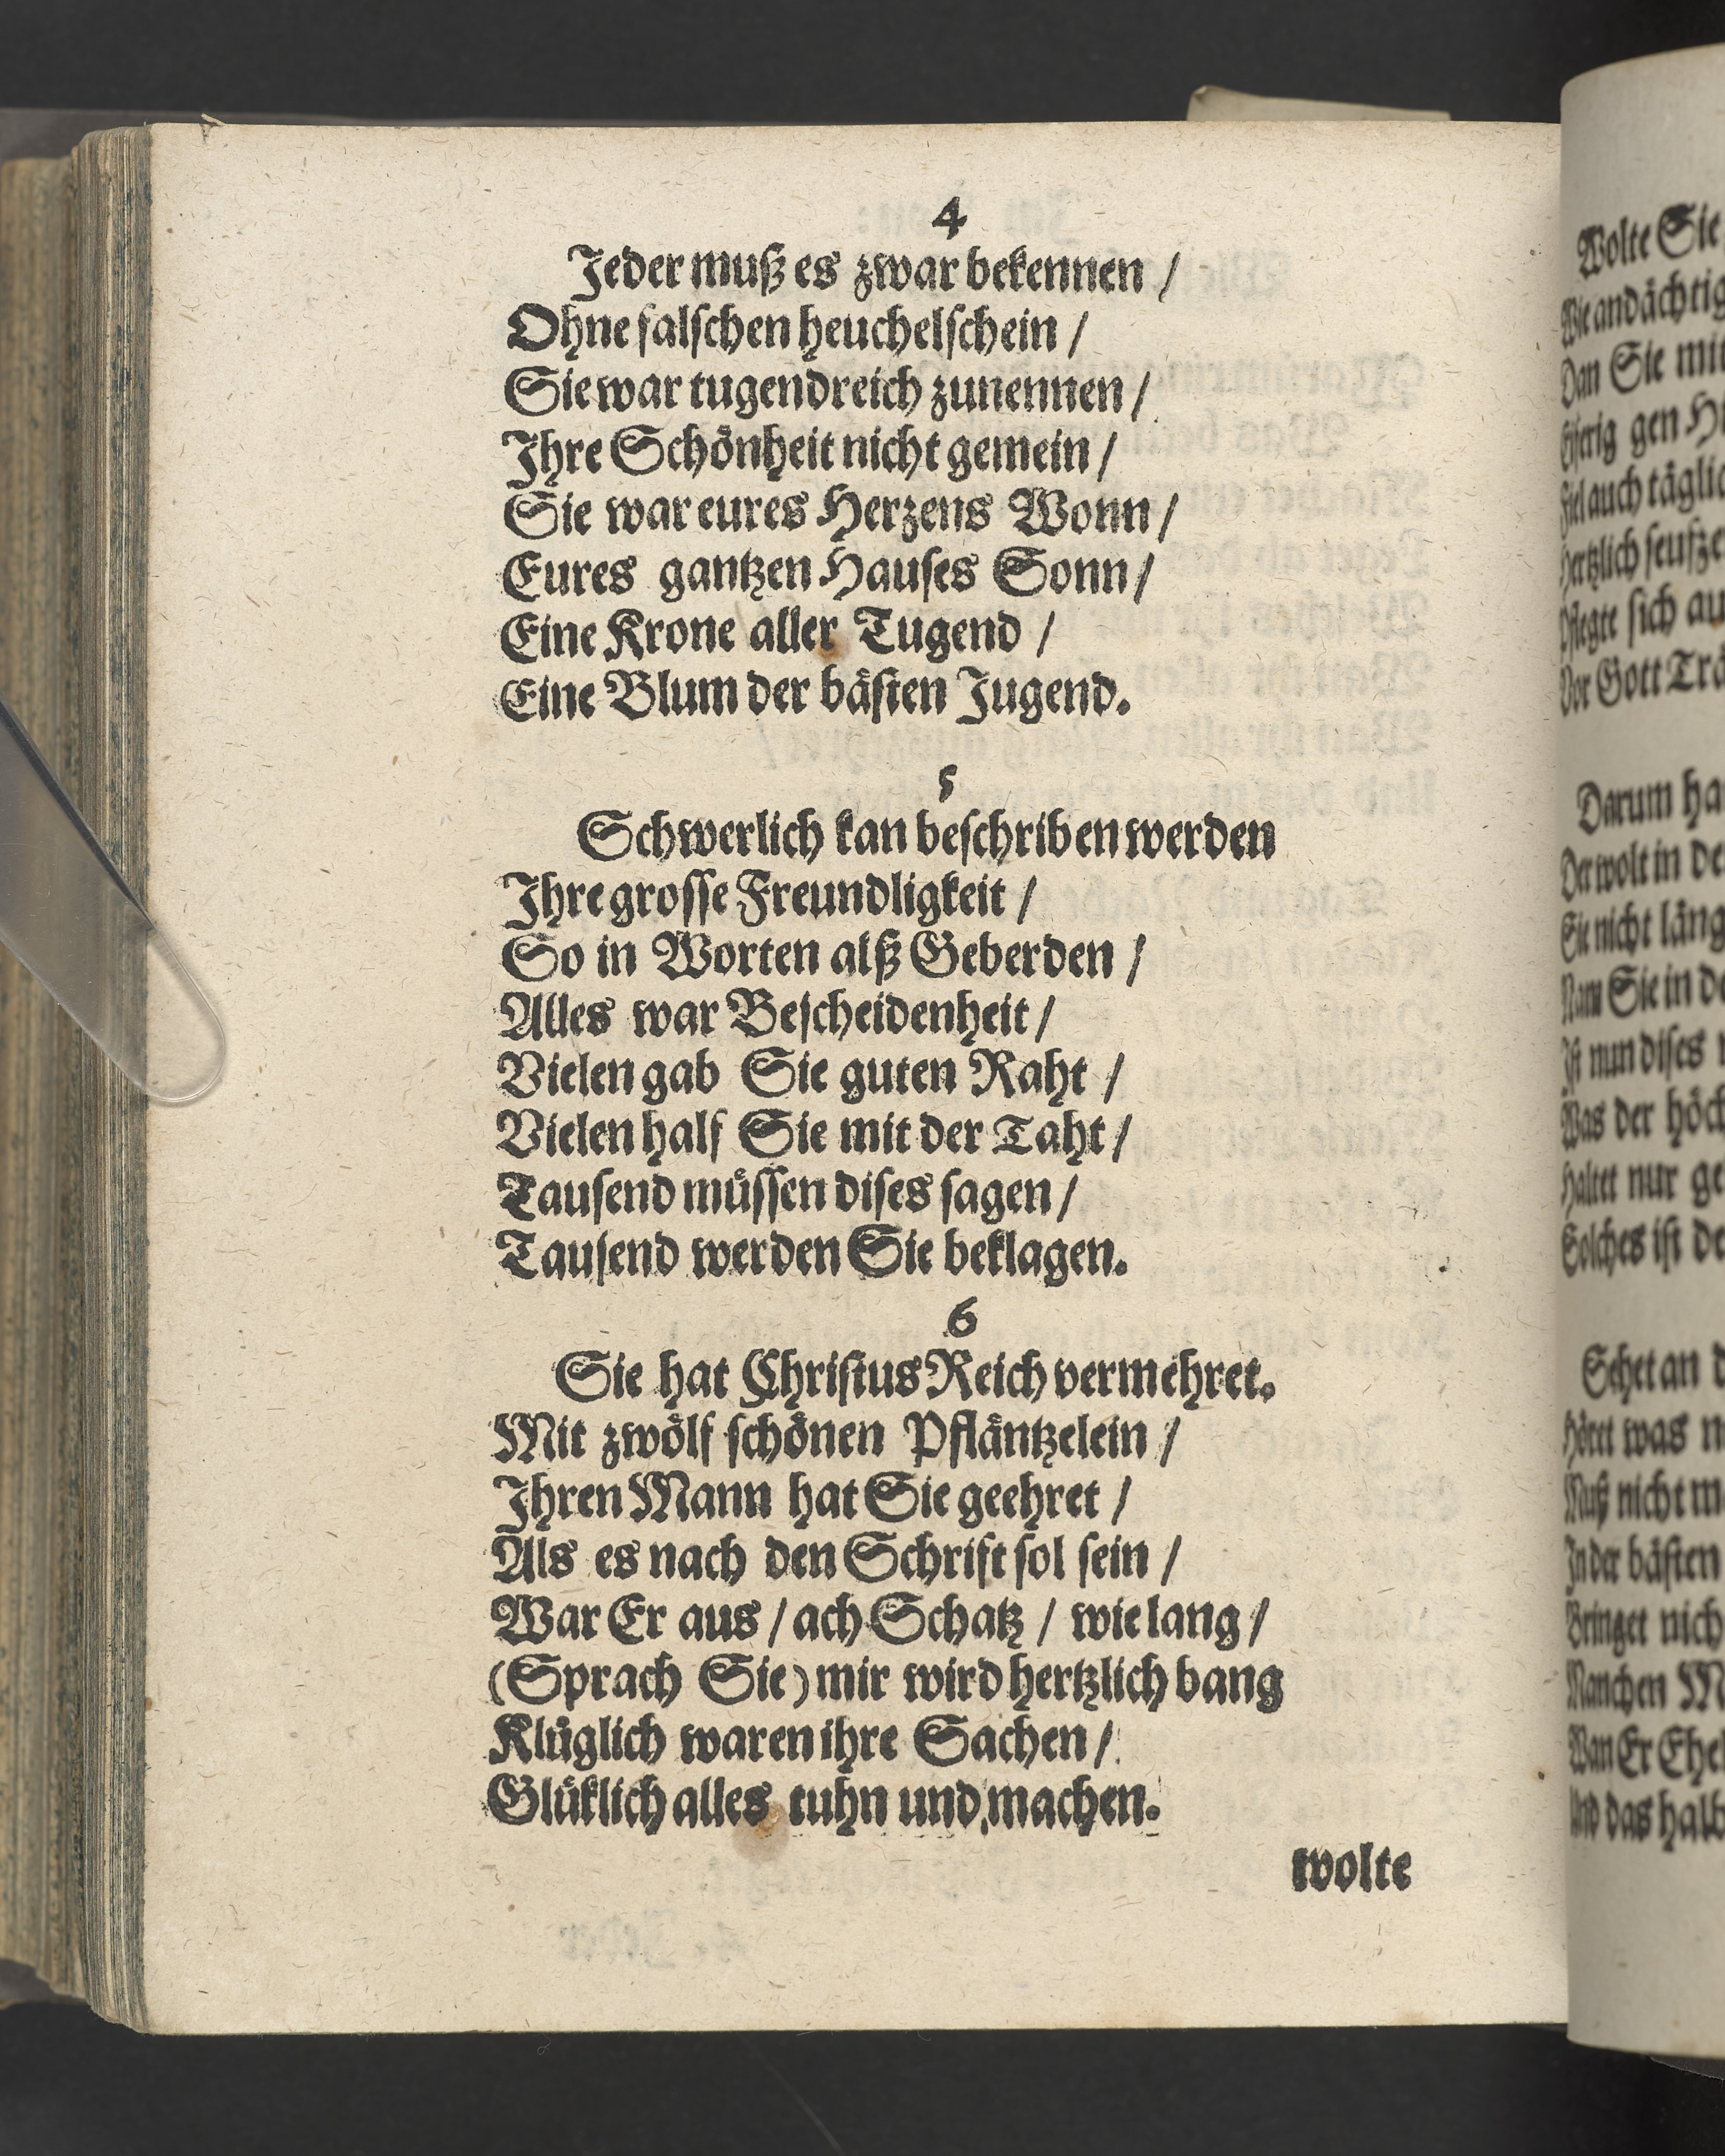 4
Jeder muß es zwar bekennen /
Ohne falschen heuchelschein /
Sie war tugendreich zunennen /
Ihre Schönheit nicht gemein /
Sie war eures Herzens Wonn /
Eures gantzen Hauses Sonn /
Eine Krone aller Tugend /
Eine Blum der bästen Jugend.
5
Schwerlich kan beschriben werden
Ihre grosse Freundligkeit /
So in Worten alß Geberden /
Alles war Bescheidenheit /
Vielen gab Sie guten Raht /
Vielen half Sie mit der Taht /
Tausend müssen dises sagen /
Tausend werden Sie beklagen.
6
Sie hat Christus Reich vermehret.
Mit zwölf schönen Pfläntzelein /
Ihren Mann hat Sie geehret /
Als es nach den Schrift sol sein /
War Er aus / ach Schatz / wie lang /
(Sprach Sie) mir wird hertzlich bang
Klüglich waren ihre Sachen /
Glüklich alles tuhn und machen.
wolte
Wolte Sie
Wie andächtig
Dan Sie mit
Eiferig gen
Fiel auch
Hertzlich
Pflegte sich
Vor Gott
Darum
Der wolt in
Sie nicht
Nam Sie in
Ist nun dises
Was der
Haltet nur
Solches ist
Sehet an
Höret was
Muß nicht
In der bästen
Bringet
Manchen
Wan Er
Und das